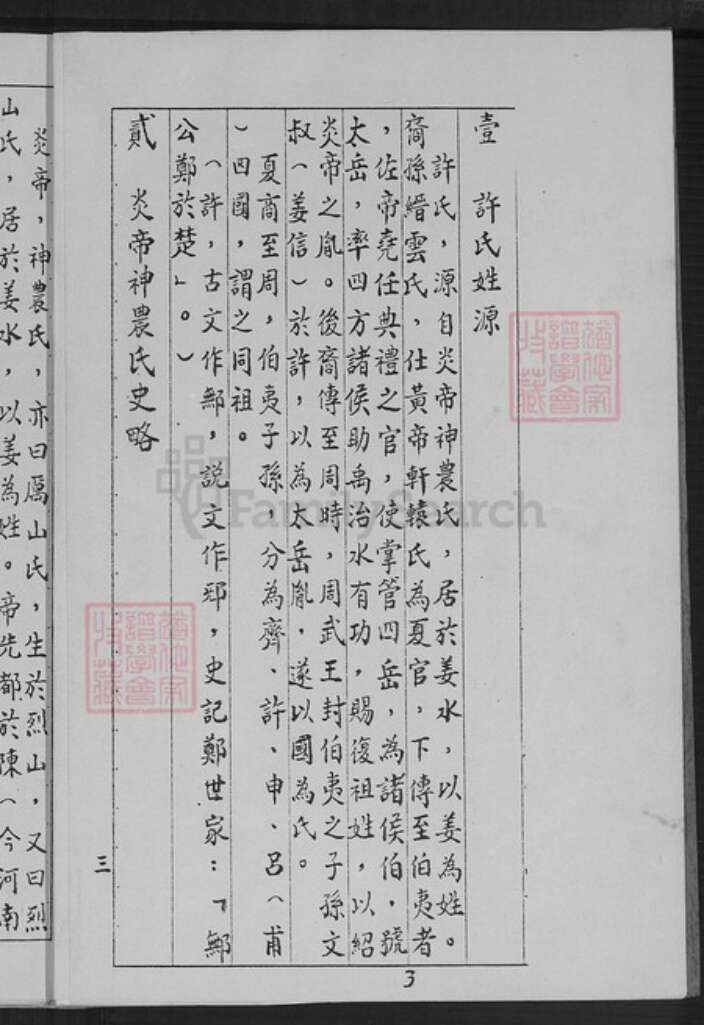 壹　許氏姓源
許氏，源自炎帝神農氏，居於姜水，以姜為姓。
裔孫縉雲氏，仕黃帝軒轅氏為夏官，下傳至伯夷者
，佐帝堯任典禮之官，使掌管四岳，為諸侯伯，號
太岳，率四方諸侯助禹治水有功，賜復祖姓，以紹
炎帝之胤。後裔傳至周時，周武王封伯夷之子孫文
叔（姜信）於許，以為太岳胤，遂以國為氏。
夏商至周，伯夷子孫，分為齊、許、申、呂（甫
）四國，謂之同祖。
（許，古文作鄦，說文作鄦，史記鄭世家：「鄦
公鄭於楚」。）
貳　炎帝神農氏史略
三
3
炎帝，神農氏，亦曰厲山氏，生於烈山，又曰烈
山氏，居於姜水，以姜為姓。帝先都於陳（今河南
FamilySearch